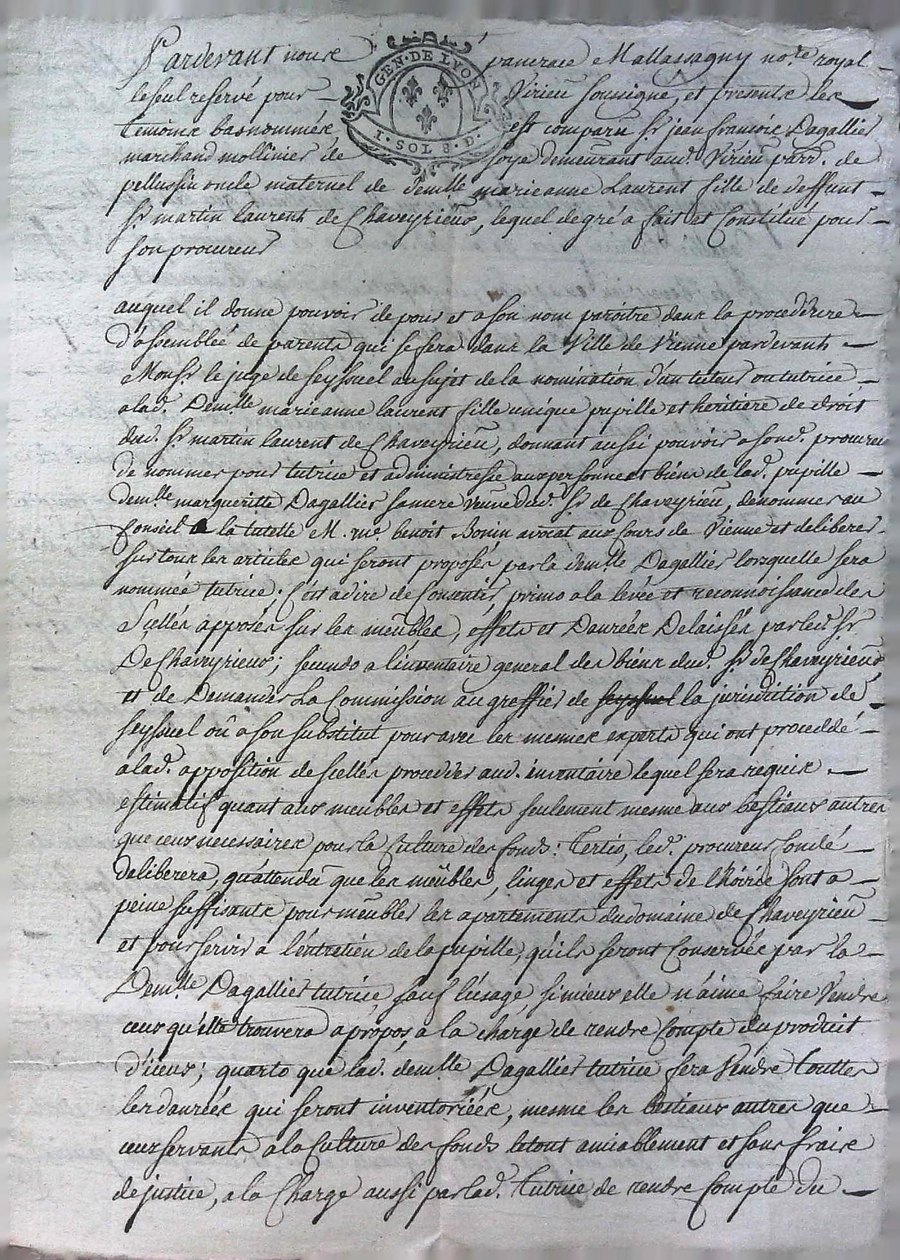 Pardevant nous pancrace Mallassagny no.re royal
le seul reservé pour Virieu soussigné, et presents les
temoins basnommés est comparu Sr jean francois Dagallier
marchand mollinier de soye demeurant aud. Virieu parr. de
pellussin oncle maternel de demlle marieanne Laurent fille de deffunt
Sr martin laurent de Chaveyrieu, lequel de gré a fait et Constitué pour
son procureur
GEN. DE LYON
1. SOL 8. D.
auquel il donne pouvoir de pour et a son nom paroitre dans la procedeure
d'assemblée de parents qui se fera dans la Ville de Vienne pardevant
Monsr le juge de Seyssuel au sujet de la nomination d'un tuteur ou tutrice
a lad. Demlle marieanne laurent fille unique pupille et heritiere de droit
dud. Sr martin laurent de Chaveyrieu, donnant aussi pouvoir a sond. procureur
de nommer pour tutrice et administresse aux personne et biens de lad. pupille
demlle margueritte Dagallier sa mere veuve dud. Sr de Chaveyrieu, de nommer au
Conseil a la tutelle M. me benoit Bonin avocat aux Cours de Vienne et deliberer
sur tous les articles qui seront proposés par la demlle Dagallier lorsquelle sera
nommée tutrice; C'est a dire de Consentir, primo a la levée et reconnoissance des
Scellés apposés sur les meubles, effets et Danrées Delaissés par led. Sr
De Chaveyrieu; secundo a l'inventaire general des biens dud. Sr de Chaveyrieu
et de Demander La Commission au greffier de seyssuel la jurisdition de
seyssuel où a son substitut pour avec les mesmes experts qui ont proceddé
a lad. apposition de scellés proceder aud. inventaire lequel sera requis
estimatif quant aux meubles et effets seulement mesme aux bestiaux autres
que ceux necessaires pour la Culture des fonds: Tertio, led. procureur fondé
deliberera, qu'attendu que les meubles, linges et effets de l'hoirie sont a
peine suffisants pour meubler les apartements du domaine de Chaveyrieu
et pour servir a l'entretien de la pupille, qu'ils seront Conservés par la
Demlle Dagallier tutrice, sauf l'usage, si mieux elle n'aime faire Vendre
ceux qu'elle trouvera a propos, a la charge de rendre Compte du produit
d'iceux; quarto que lad. demlle Dagallier tutrice fera Vendre Touttes
les danrées qui seront inventoriées, mesme les bestiaux autres que
ceux servants a la Culture des fonds le tout amiablement et sans frais
de justice, a la Charge aussi par lad. Tutrice de rendre Compte du